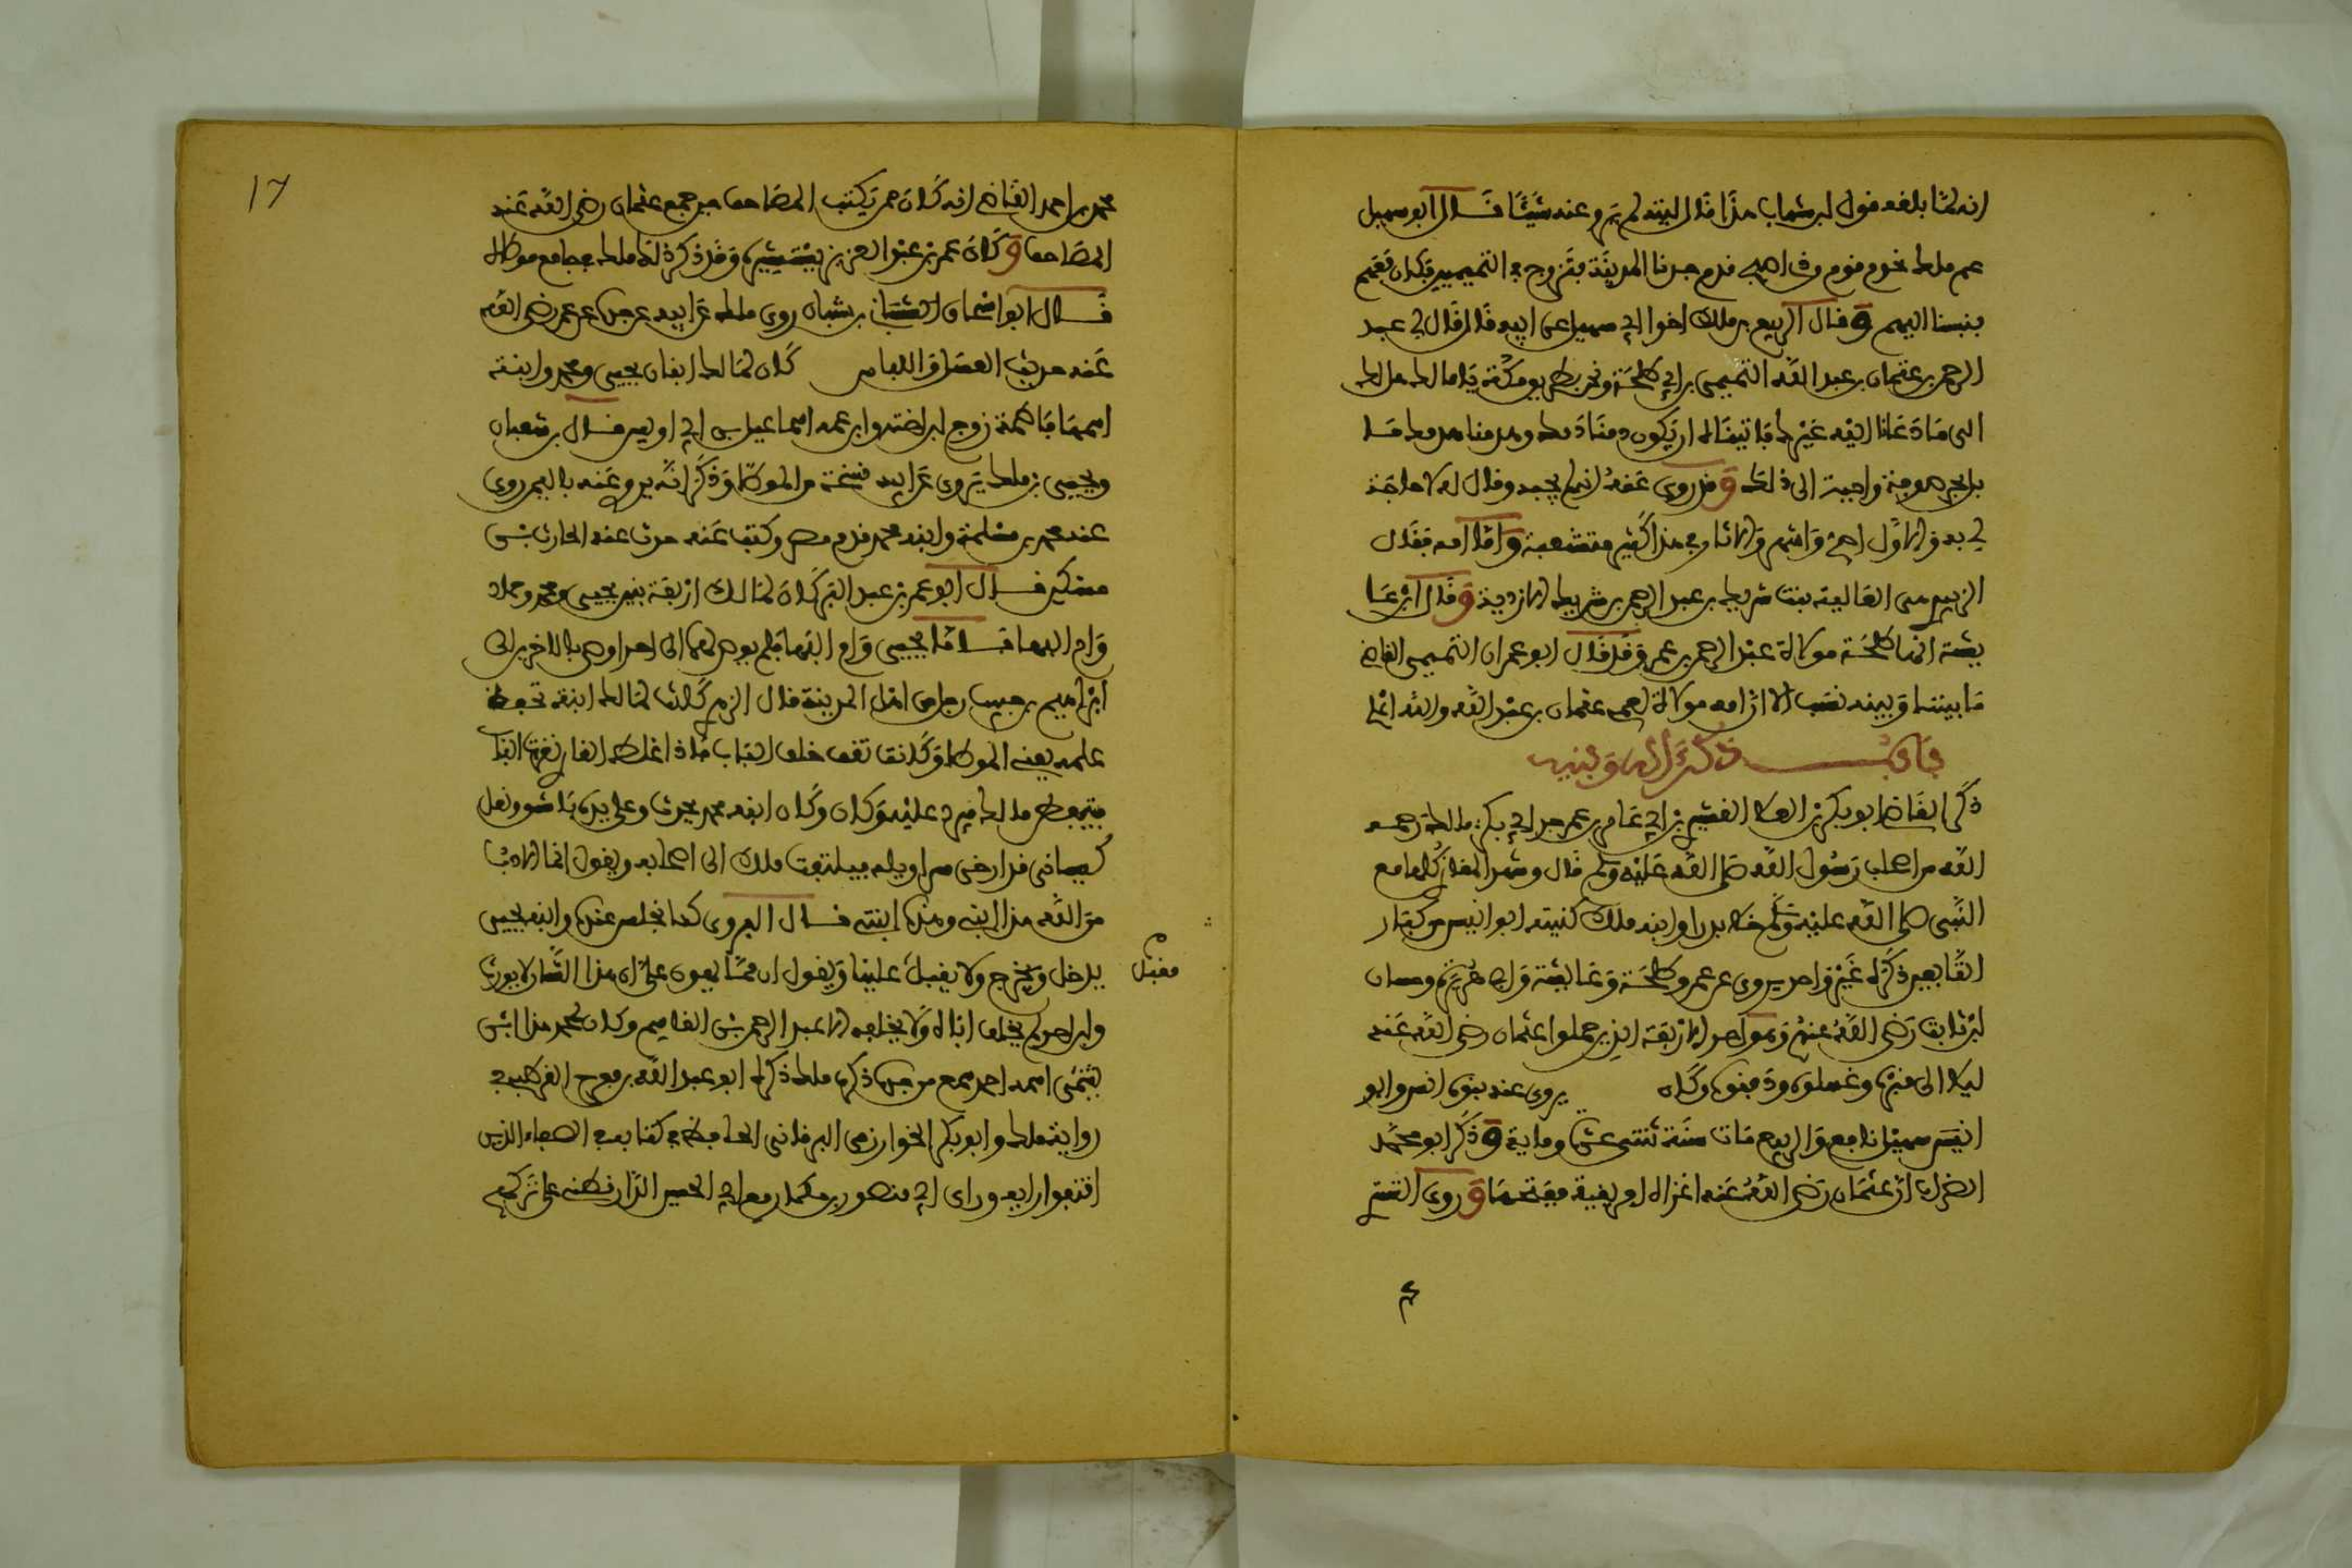 انه لما بلغه قول ابن شهاب هذا قال ليته لم يرو عنه شيئا قال ابو سهيل
عم ملك نحن قوم من اصبح قدم جدنا المدينة فتزوج في التيميين فكان معهم
فنسبنا اليهم وقال الربيع بن ملك اخو ابي سهيل عن ابيه قال قال لي عبد
الرحمن بن عثمان بن عبد الله التيمي بن اخي طلحة ونحن بطريق مكة يا مالك هل لك
الى ما دعانا اليه غيرك فابيناه ان يكون دمنا دمك وهدمنا هدمك ما
بل بحر صوفة واجبته الى ذلك وقد روي عنه انه لم يجبه وقال له لا حاجة
لي به والاول اصح واشهر والاثار في هذا كثير متشعبة واما امه فقال
الزبير هي العالية بنت شريك بن عبد الرحمن بن شريك الازدية وقال ابن عا
يشة انها طلحة مولاة عبد الرحمن بن عمر وقد قال ابو عمران التميمي القاضي
ما بيننا وبينه نسب الا ان امه مولاة لعمه عثمان بن عبد الله والله اعلم
باب ذكر ءاله وبنيه
ذكر القاضي ابو بكر بن العلا القشيري ان ابا عامر بن عمر جد ابي بكر مالك رحمه
الله من اصحاب رسول الله صلى الله عليه وسلم قال وشهد المغازي كلها مع
النبي صلى الله عليه وسلم خلا بدرا وابنه ملك كنيته ابو انيس من كبار
التابعين ذكره غير واحد يروي عن عمر وطلحة وعايشة وابي هريرة وحسان
ابن ثابت رضي الله عنهم وهو احد الاربعة الذين حملوا عثمان رضي الله عنه
ليلا الى قبره وغسلوه ودفنوه وكان يروي عنه بنوه انس وابو
انيس سهيل نافع والربيع مات سنة ثنتي عشرة وماية وذكر ابو محمد
الضراب ان عثمان رضي الله عنه اغزاه افريقية ففتحها وروى التستري
٤
١٦
محمد بن احمد القاضي انه كان ممن يكتب المصاحف حين جمع عثمان رضي الله عنه
المصاحف وكان عمر بن عبد العزيز يستشيره وقد ذكر ذلك ملك في جامع موطاه
قال ابو اسحاق بن شعبان روى ملك عن ابيه عن جده عن عمر رضي الله
عنه حديث الغسل واللباس كان لمالك ابنان يحيى ومحمد وابنة
اسمها فاطمة زوج ابن اخته وابن عمه اسماعيل بن ابي اويس قال بن شعبان
ويحيى بن ملك يروي عن ابيه نسخة من الموطا وذكر انه يروى عنه باليمن روى
عنه محمد بن مسلمة وابنه محمد قدم مصر وكتب عنه حدث عنه الحارث بن
مسكين قال ابو عمر بن عبد البر كان لمالك اربعة بنين يحيى ومحمد وحماد
وام ابيها فاما يحيى وام ابيها فلم يوص بهما الى احد واوصى بالاخرين الى
ابراهيم بن حبيب رجل من اهل المدينة قال الزبير كانت لمالك ابنة تحفظ
علمه يعني الموطا وكانت تقف خلف الباب فاذا غلط القاري نقرت الباب
فيتفطن مالك فيرد عليه وكان ابنه محمد يجي وعلى يده باشق ونعل
كيساني قد ارخى سراويله فيلتفت ملك الى اصحابه ويقول انما الادب
مع الله هذا ابني وهذه ابنتي قال الفروي كنا نجلس عنده وابنه يحيى
يدخل ويخرج ولا يقعد علينا ويقول ان مما يهون علي ان هذا الشان لا يورث
مقبل
وان احدا لم يخلف اباه الا عبد الرحمن بن القاسم وكان لمحمد هذا ابن
يسمى احمد سمع من جده ذكره ملك ذكره ابو عبد الله بن مفرج القرطبي في
رواية ملك وابو بكر الخوارزمي البرقاني الحافظ في كتابه في الضعفاء الذين
اتفق رايه وراي ابي منصور بن حمكان مع ابي الحسن الدارقطني على تركهم